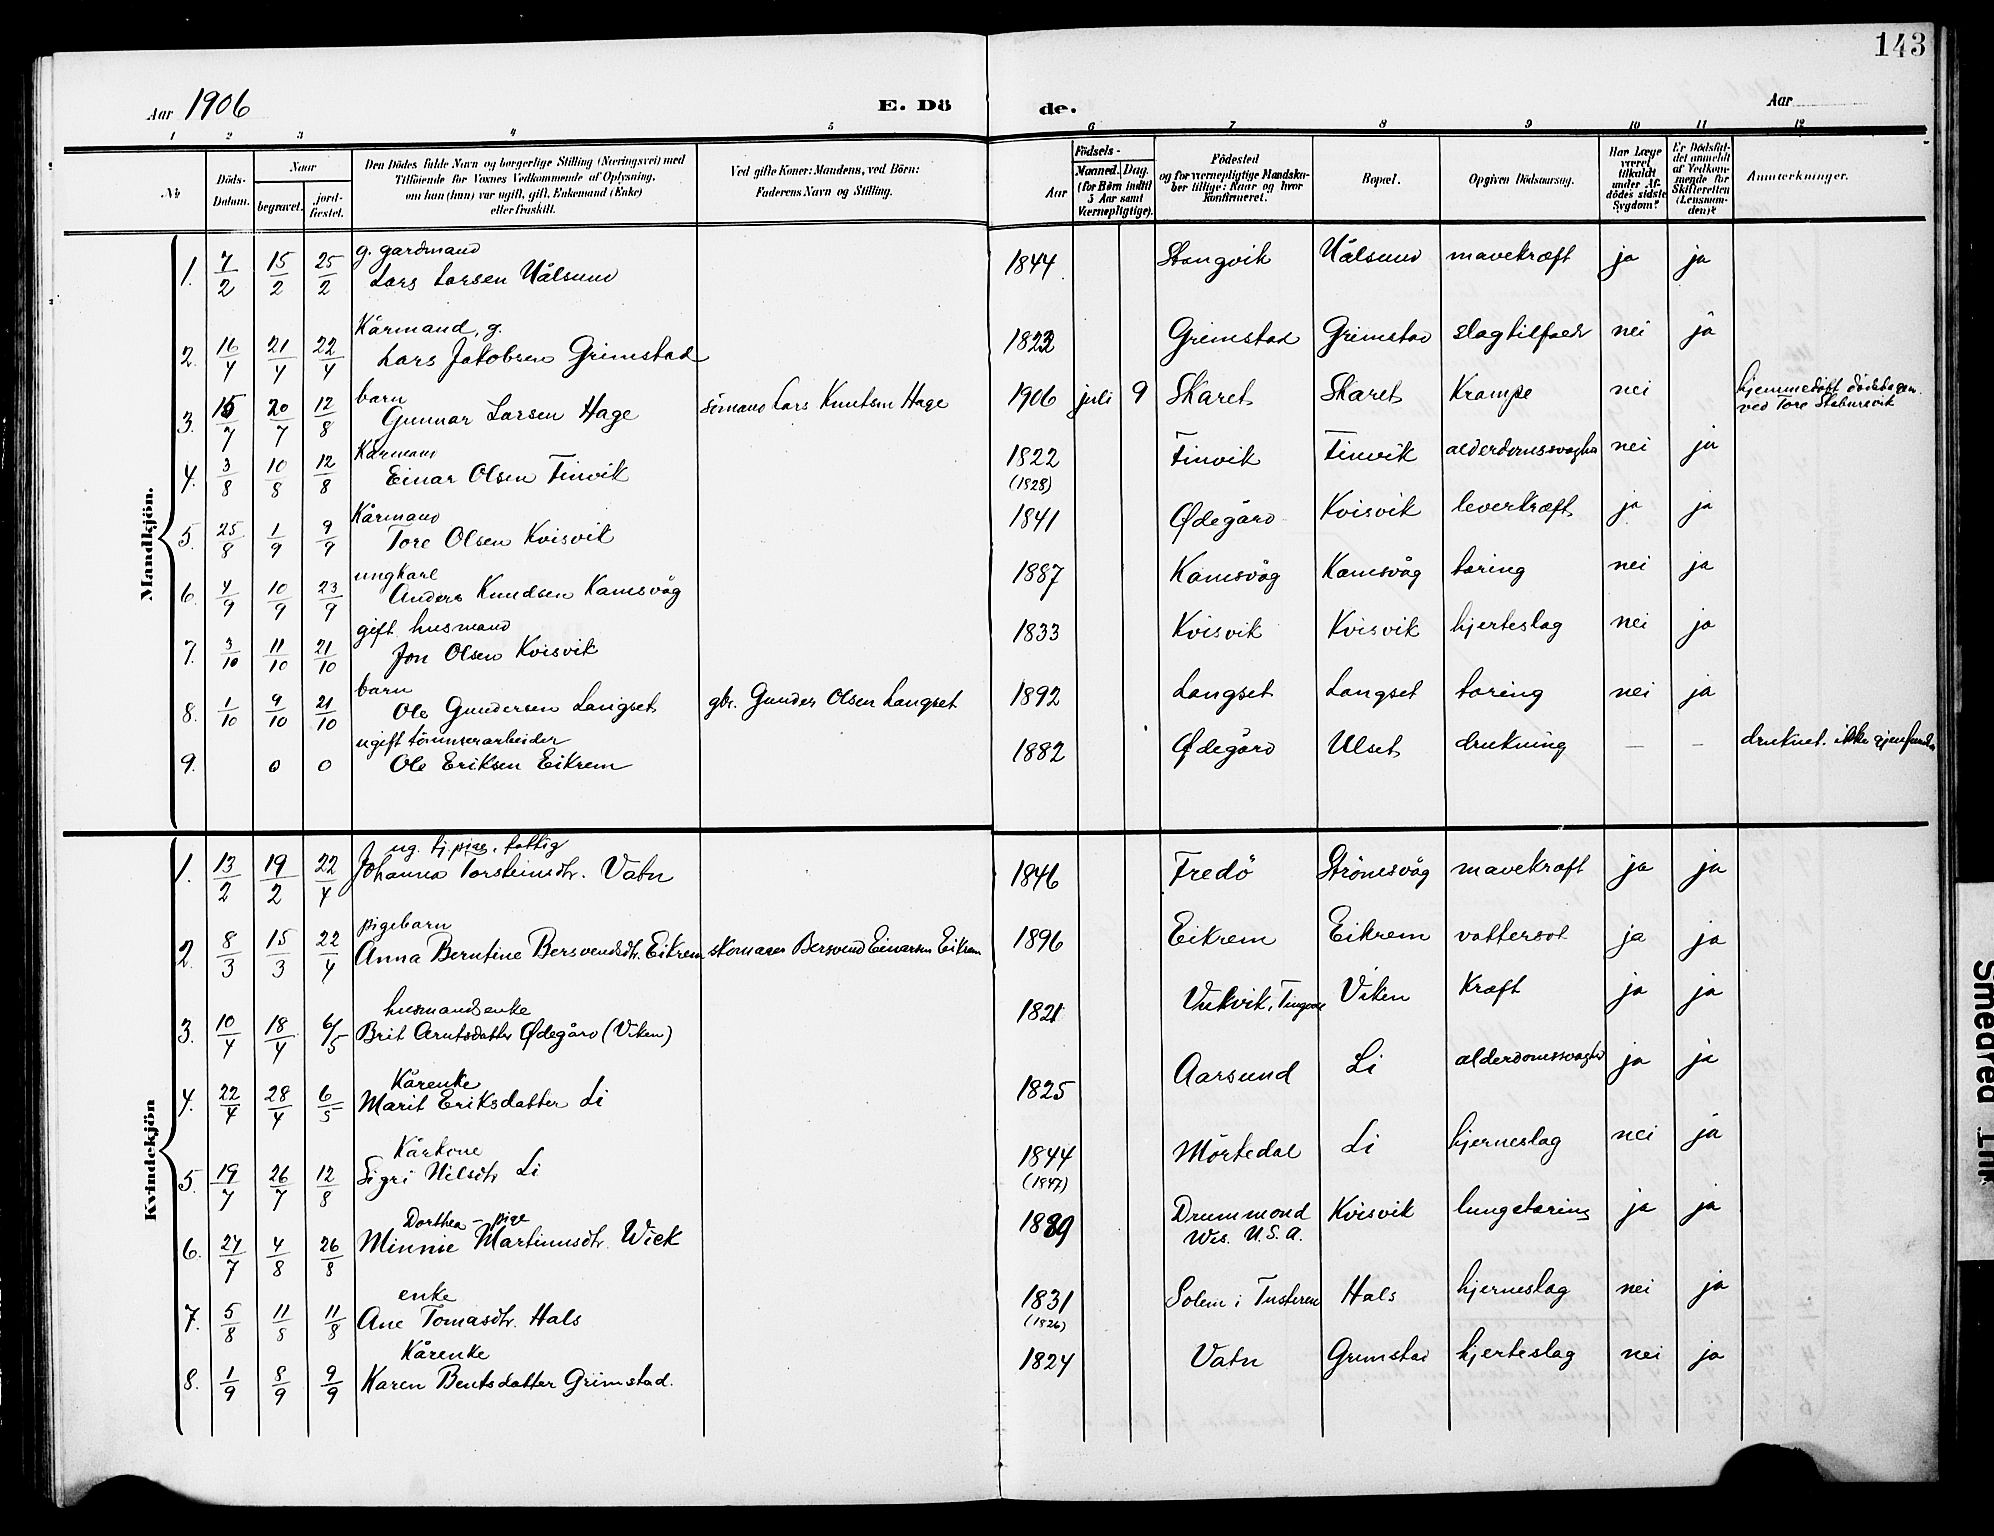 143
Aar 1906
E. Dö
de.
Aar
1 2 3 4 5 6 7 8 9 10 11 12
No
Döds-
Datum.
Naar
begravet.
jord-
fæstet.
Den Dödes fulde Navn og borgerlige Stilling (Næringsvei) med
Tilföiende for Voxnes Vedkommende af Oplysning,
om han (hun) var ugift, gift, Enkemand (Enke)
eller fraskilt.
Ved gifte Koner: Mandens, ved Börn:
Faderens Navn og Stilling.
Födsels-
Aar
Maaned.
Dag.
(for Börn indtil
5 Aar samt
Værnepligtige).
Födested
og for værnepligtige Mandska-
ber tillige: Naar og hvor
konfirmeret.
Bopæl.
Opgiven Dödsaarsag.
Har Læge
været
tilkaldt
under Af-
dödes sidste
Sygdom?
Er Dödsfal-
det anmeldt
af Vedkom-
mende for
Skifteretten
(Lensman-
den)?
Anmærkninger.
Mandkjön.
g. gardmand
1. 7/2 15/2 25/2 Lars Larsen Ulsund 1844 Stangvik Ulsund mavekræft ja ja
Kårmand, g.
2. 16/4 21/4 22/4 Lars Jakobsen Grimstad 1823 Grimstad Grimstad slagtilfæde nei ja
barn
3. 15/7 20/7 12/8 Gunnar Larsen Hage sömand Lars Knutsen Hage 1906 juli 9 Skaret Skaret Krampe nei hjemmedöpt dödsdagen
ved Tore Stabursvik
Kårmand
4. 3/8 10/8 12/8 Einar Olsen Finvik 1822 Finvik Finvik alderdomssvaghe nei ja
(1828)
Kårmand
5. 25/8 1/9 9/9 Tore Olsen Kvisvik 1841 Ødegård Kvisvik leverkræft ja ja
ungkarl
6. 4/9 10/9 23/9 Anders Knudsen Kamsvåg 1887 Kamsvåg Kamsvåg tæring nei ja
gift husmand
7. 3/10 11/10 21/10 Jon Olsen Kvisvik 1833 Kvisvik Kvisvik hjerteslag nei ja
barn
8. 1/10 9/10 21/10 Ole Gundersen Langset gbr. Gunder Olsen Langset 1892 Langset Langset tæring nei ja
ugift tömmerarbeider
9. 0 0 Ole Eriksen Eikrem 1882 Ødegård Ulset drukning — — druknet. ikke gjenfunden
Kvindekjön
ug. tj.pige, fattig
1. 13/2 19/2 22/4 Johanna Torsteinsdtr. Vatn 1846 Fredö Strömsvåg mavekræft ja ja
pigebarn
2. 8/3 15/3 22/4 Anna Berntine Bersvendsdtr. Eikrem skomager Bersvend Einarsen Eikrem 1896 Eikrem Eikrem vattersot ja ja
husmandsenke
3. 10/4 18/4 6/5 Brit Arntsdatter Ødegård (Viken) 1821 Vulvik, Tingvol Viken Kræft ja ja
Kårenke
4. 22/4 28/4 6/5 Marit Eriksdatter Li 1825 Aarsund Li alderdomssvaghed ja ja
Kårkone
5. 19/7 26/7 12/8 Sigri Nilsdtr Li 1844 Mörkedal Li hjerneslag nei ja
(1847)
Dorthea – pige
6. 27/7 4/8 26/8 Minnie Martinusdtr. Wick 1889 Drummond Kvisvik lungetæring ja ja
Wis. U.S.A.
enke
7. 5/8 11/8 11/8 Ane Tomasdtr. Hals 1831 Solem i Tusteren Hals hjerneslag nei ja
(1826)
Kårenke
8. 1/9 8/9 9/9 Karen Bentsdatter Grimstad. 1824 Vatn Grimstad hjerteslag nei ja
Smeared Ink